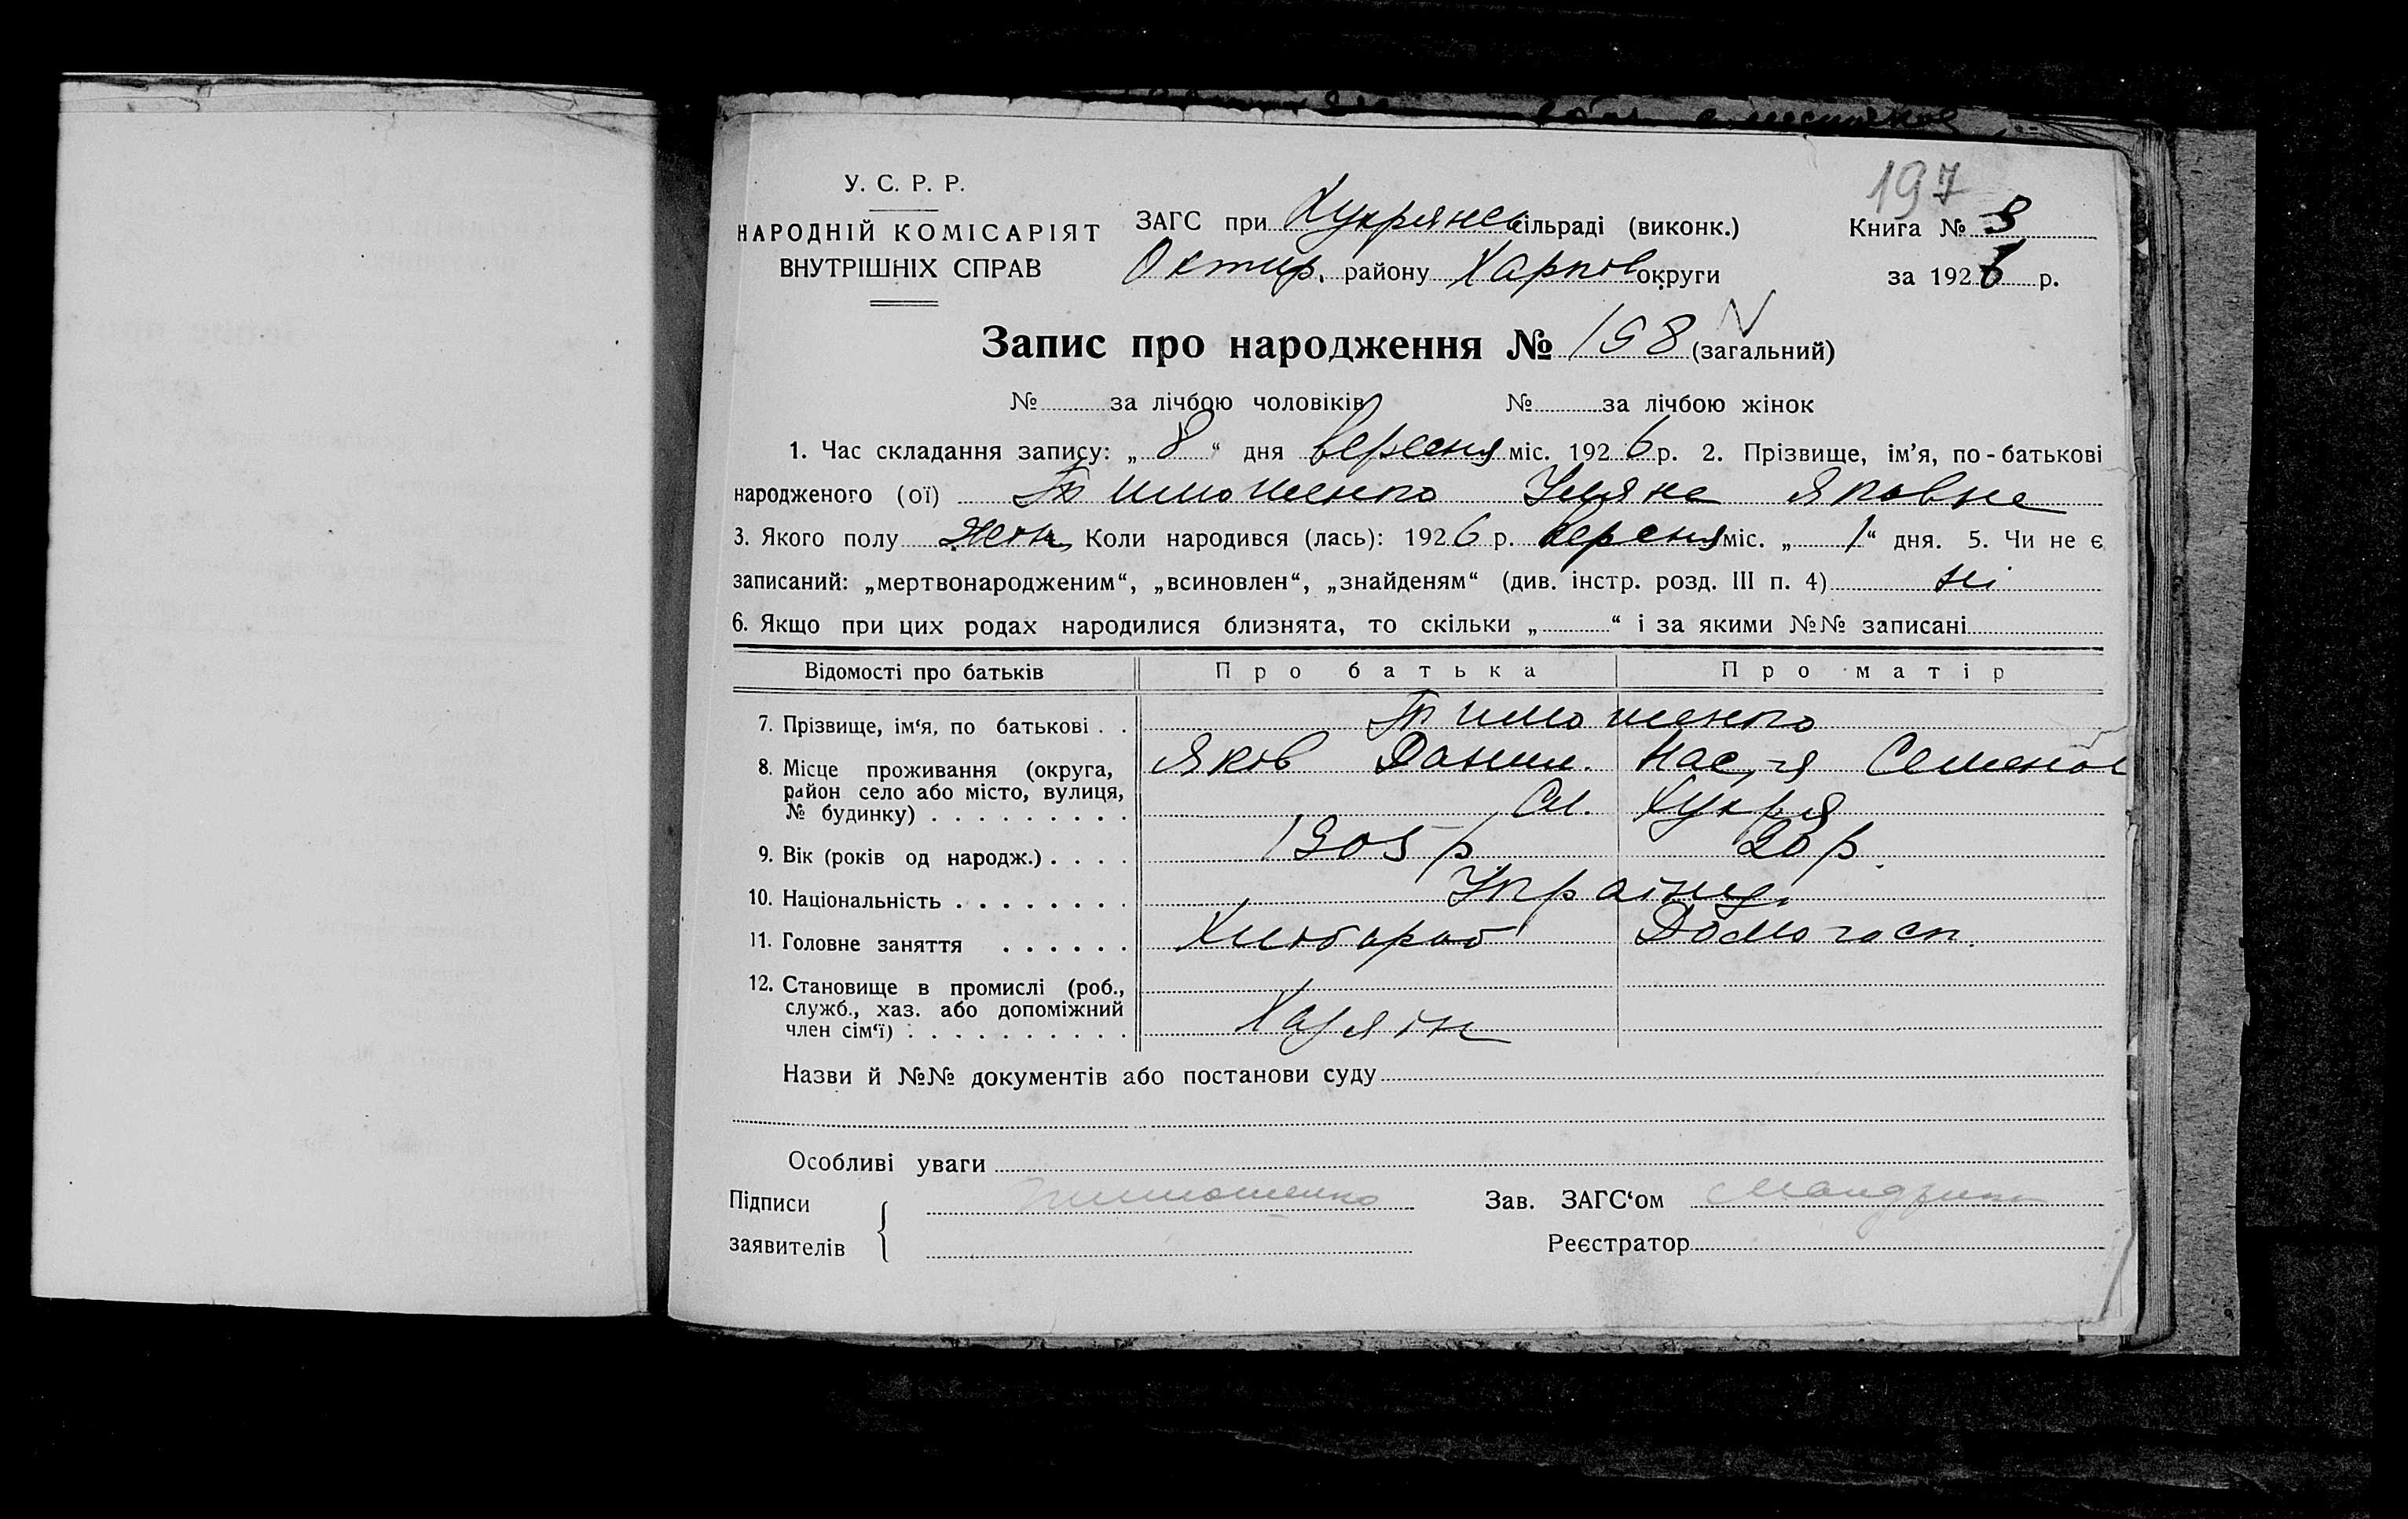 197
У. С. Р. Р.
НАРОДНІЙ КОМІСАРІЯТ
ВНУТРІШНІХ СПРАВ
ЗАГС при Хухрянск сільраді (виконк.)
Охтир. району Харков округи
Книга № 3
за 1926 р.
Запис про народження № 198 (загальний)
№ за лічбою чоловіків № за лічбою жінок
1. Час складання запису: „ 8 “ дня вересня міс. 1926 р. 2. Прізвище, ім’я, по-батькові
народженого (ої) Тимошенко Уляна Яковна
3. Якого полу жен. Коли народився (лась): 1926 р. вересня міс. „ 1 “ дня. 5. Чи не є
записаний: „мертвонародженим“, „всиновлен“, „знайденям“ (див. інстр. розд. III п. 4) ні
6. Якщо при цих родах народилися близнята, то скільки „ “ і за якими №№ записані
Відомості про батьків Про батька Про матір
7. Прізвище, ім‘я, по батькові . . Тимошенко
Яков Данил. Настя Семенов
8. Місце проживання (округа,
район село або місто, вулиця,
№ будинку) . . . . . . . . . Сл. Хухря
9. Вік (років од народж.) . . . . 1905 р 20 р.
10. Національність . . . . . . . . Україн.
11. Головне заняття . . . . . . Хлібороб Домогосп.
12. Становище в промислі (роб.,
служб., хаз. або допоміжний
член сім‘ї) . . . . . . . . . . Хазяїн
Назви й №№ документів або постанови суду
Особливі уваги
Підписи
заявителів
Тимошенко
Зав. ЗАГС‘ом
Реєстратор